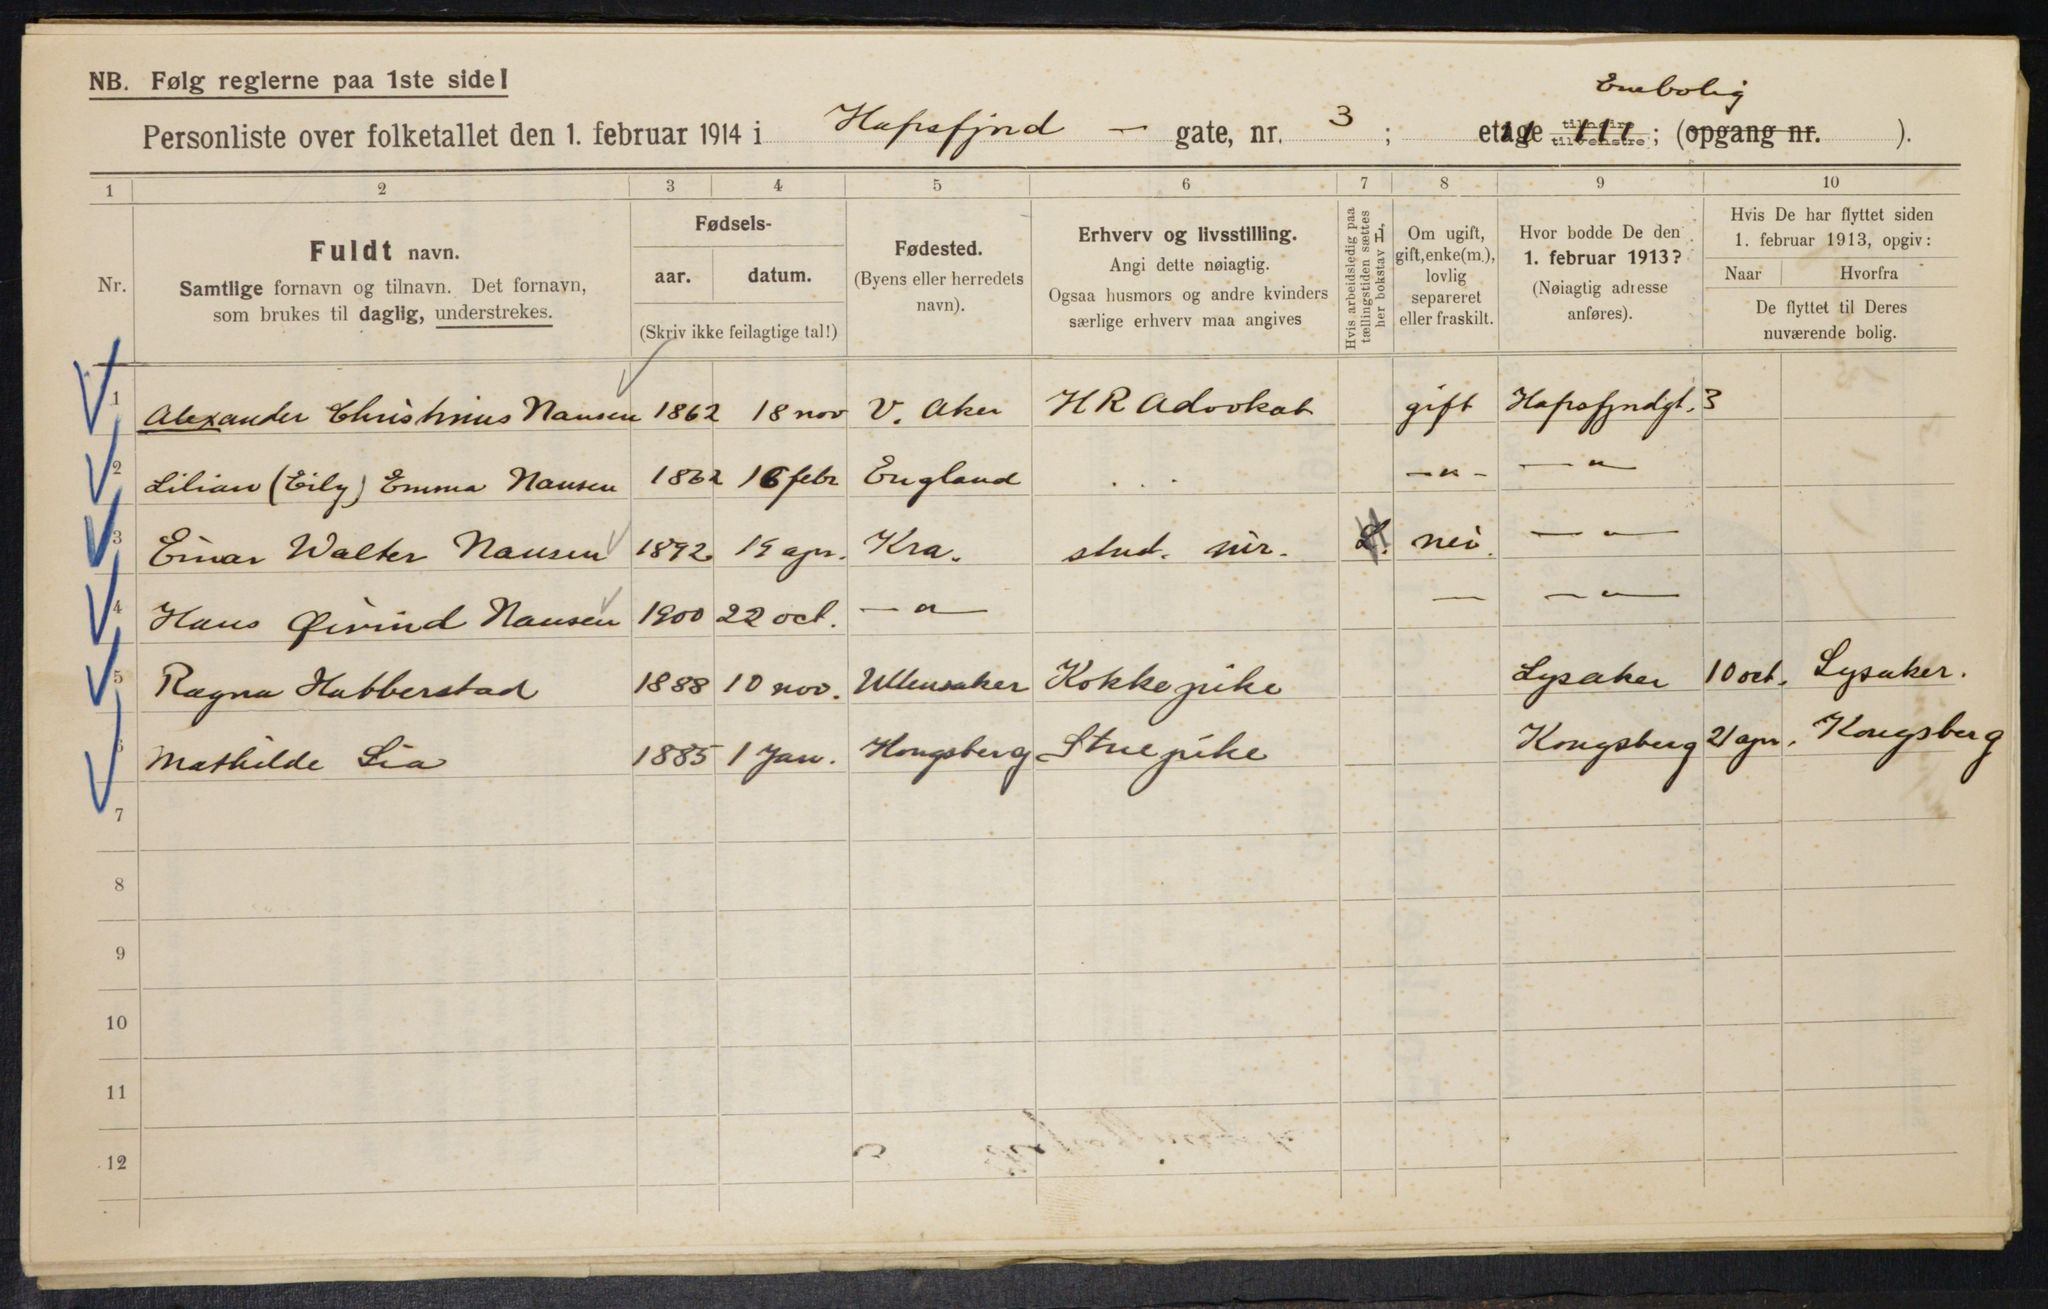 NB. Følg reglerne paa 1ste side!
Enebolig
Personliste over folketallet den 1. februar 1914 i Hafrsfjord — gate, nr. 3 ; etage tilhøire tilvenstre ; (opgang nr. ).
1 2 3 4 5 6 7 8 9 10
Nr.
Fuldt navn.
Samtlige fornavn og tilnavn. Det fornavn,
som brukes til daglig, understrekes.
Fødsels-
aar. datum.
(Skriv ikke feilagtige tal!)
Fødested.
(Byens eller herredets
navn).
Erhverv og livsstilling.
Angi dette nøiagtig.
Ogsaa husmors og andre kvinders
særlige erhverv maa angives
Hvis arbeidsledig paa
tællingstiden sættes
her bokstav L.
Om ugift,
gift, enke(m.),
lovlig
separeret
eller fraskilt.
Hvor bodde De den
1. februar 1913?
(Nøiagtig adresse
anføres).
Hvis De har flyttet siden
1. februar 1913, opgiv:
Naar Hvorfra
De flyttet til Deres
nuværende bolig.
1 Alexander Christinus Nansen 1862 18 nov V. Aker H R Advokat gift Hafrsfjordgt. 3
2 Lilian (Eily) Emma Nansen 1862 16 febr England — " — — " —
3 Einar Walter Nansen 1892 19 apr. Kra. stud. jur. L. nei. — " —
4 Hans Øivind Nansen 1900 22 oct. — " — — — " —
5 Ragna Habberstad 1888 10 nov. Ullensaker Kokkepike Lysaker 10 oct. Lysaker.
6 Mathilde Lia 1885 1 Jan. Kongsberg Stuepike Kongsberg 21 apr. Kongsberg
7
8
9
10
11
12